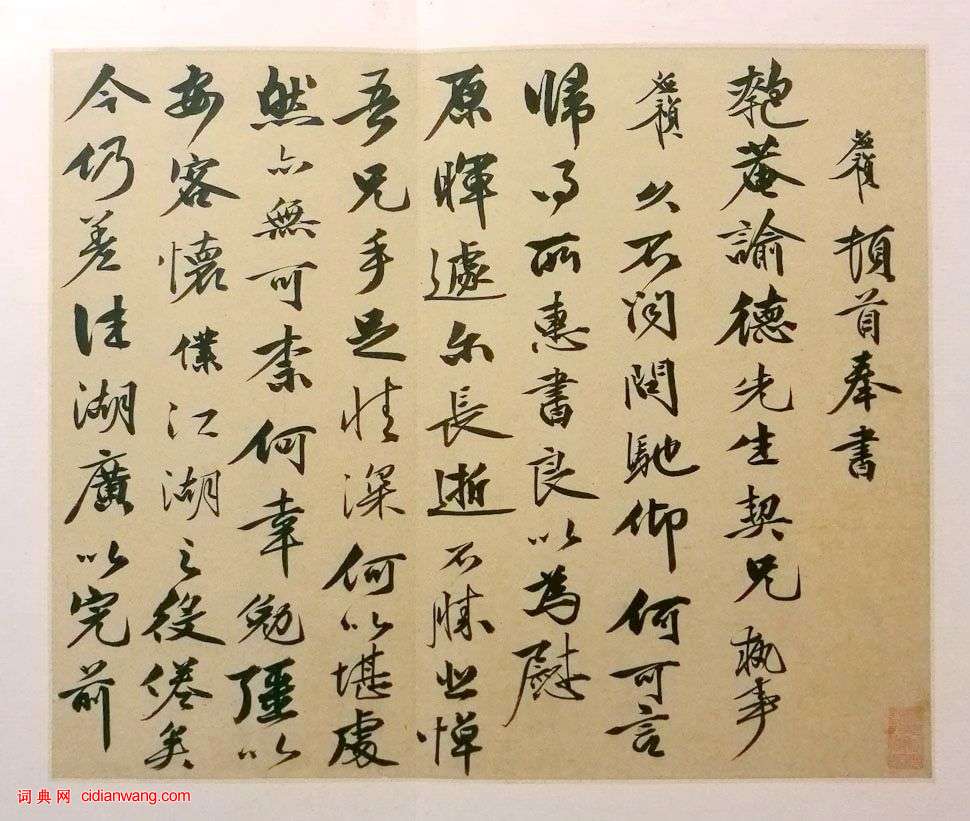 應禎頓首奉書
匏菴諭德先生契兄執事
應禎久不聞問馳仰何可言
歸得所惠書良以為慰
原暉遽尔長逝不勝悲悼
吾兄手足情深何以堪處
然亦無可柰何幸勉彊以
安客懷僕江湖之役倦矣
今仍差往湖廣以完前
词典网 cidianwang.com